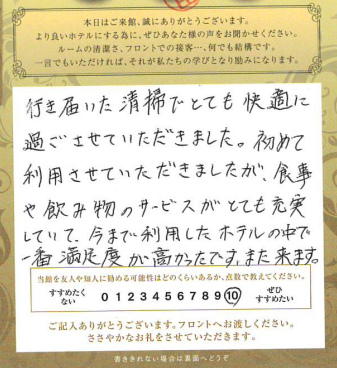 本日はご来館、誠にありがとうございます。
より良いホテルにする為に、ぜひあなた様の声をお聞かせください。
ルームの清潔さ、フロントでの接客…、何でも結構です。
一言でもいただければ、それが私たちの学びとなり励みになります。
行き届いた清掃でとても快適に
過ごさせていただきました。初めて
利用させていただきましたが、食事
や飲み物のサービスがとても充実
していて、今まで利用したホテルの中で
一番満足度が高かったです。また来ます。
当館を友人や知人に勧める可能性はどのくらいあるか、点数で教えてください。
すすめたくない 0 1 2 3 4 5 6 7 8 9 10 ぜひすすめたい
ご記入ありがとうございます。フロントへお渡しください。
ささやかなお礼をさせていただきます。
書ききれない場合は裏面へどうぞ